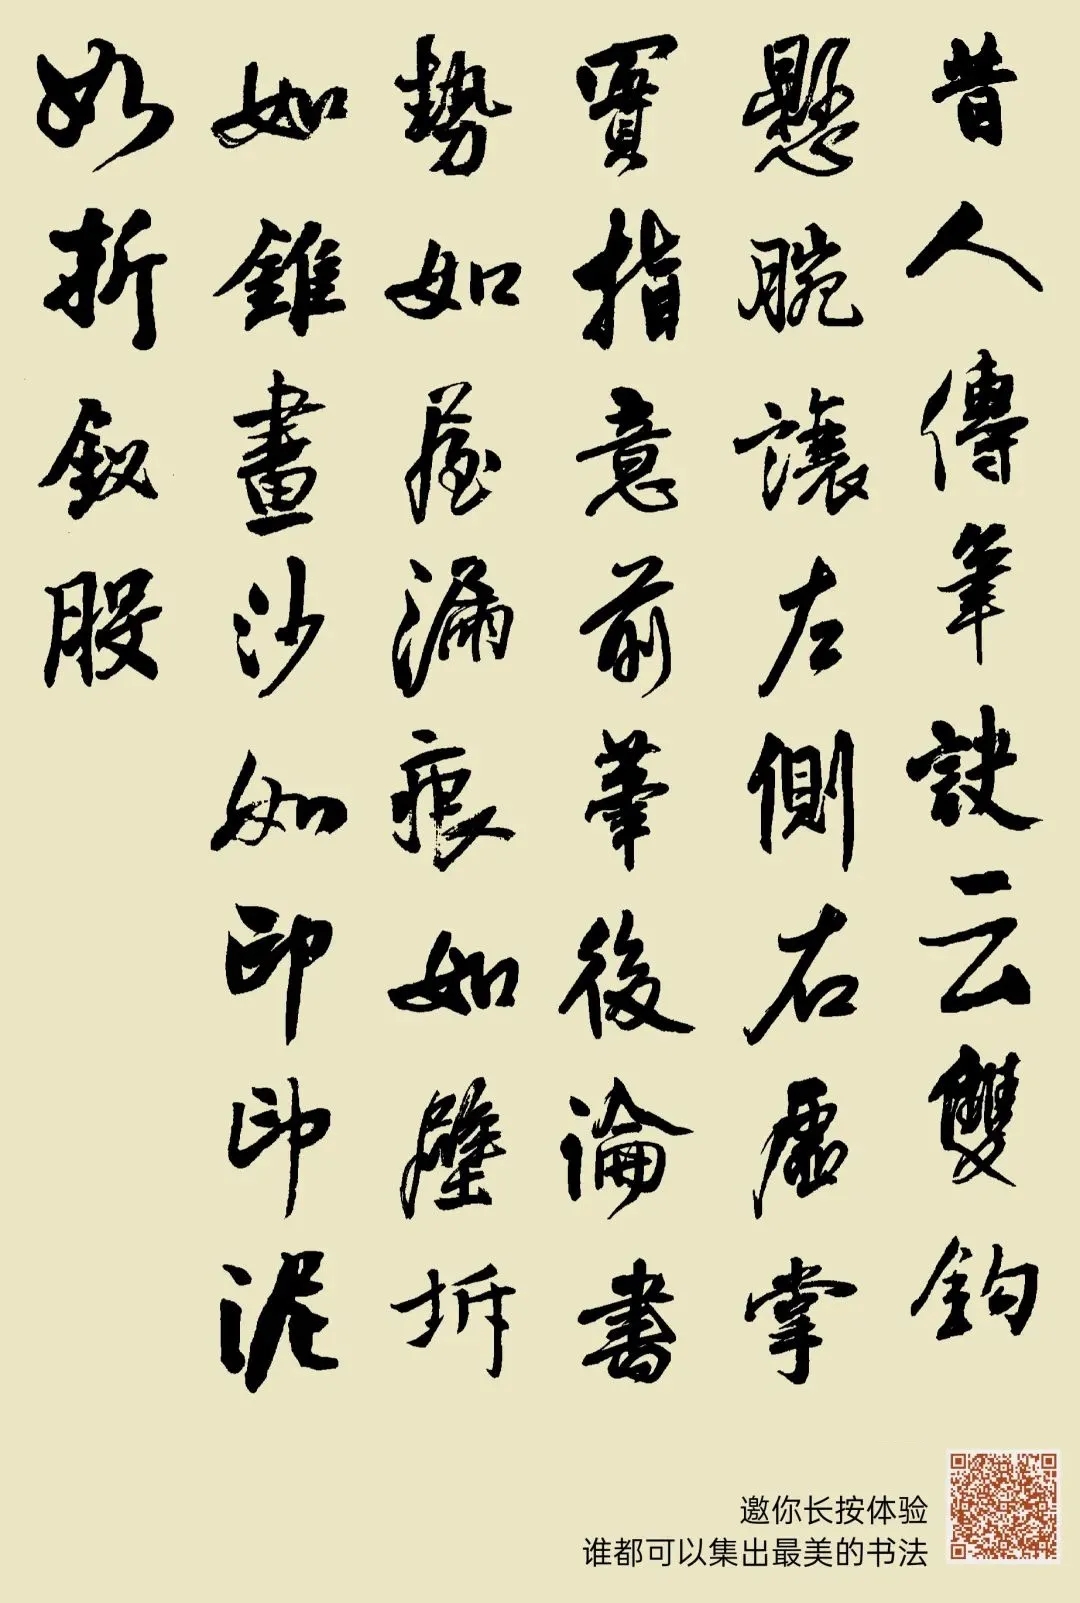 昔人傳筆訣云雙鈎
懸腕讓左側右虛掌
實指意前筆後論書
勢如屋漏痕如壁坼
如錐畫沙如印印泥
如折釵股
邀你长按体验
谁都可以集出最美的书法